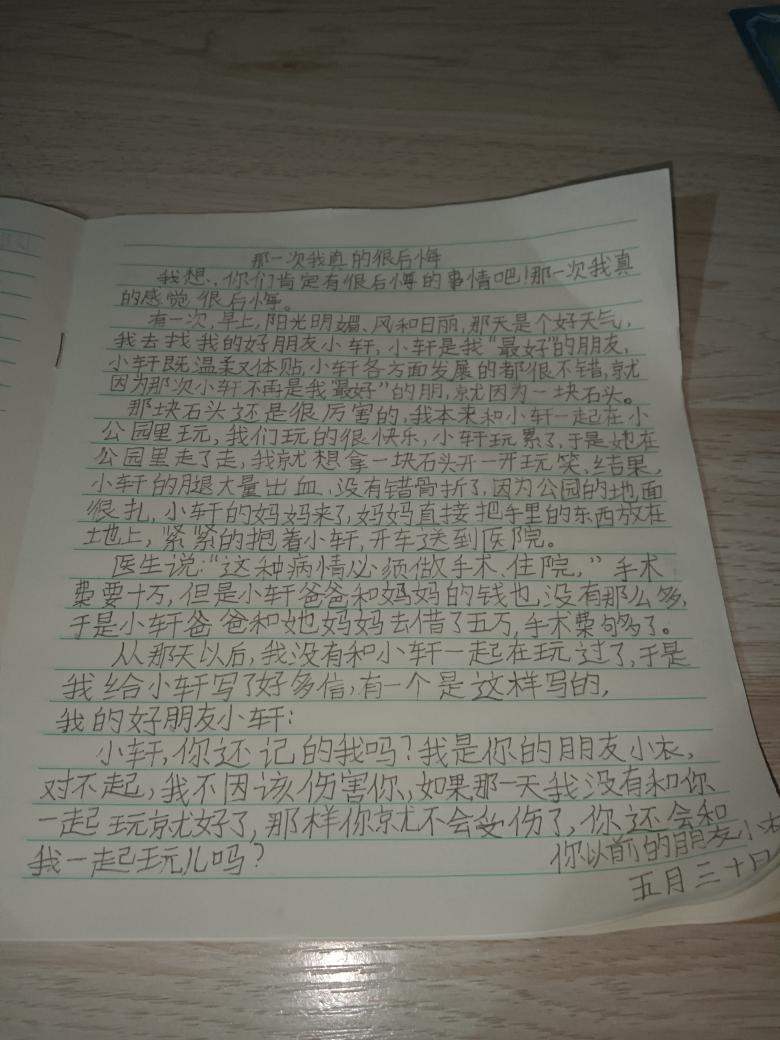 那一次我真的很后悔
我想、你们肯定有很后悔的事情吧!那一次我真
的感觉很后悔。
有一次,早上,阳光明媚、风和日丽,那天是个好天气,
我去找我的好朋友小轩,小轩是我“最好”的朋友,
小轩既温柔又体贴,小轩各方面发展的都很不错,就
因为那次小轩不再是我“最好”的朋,就因为一块石头。
那块石头还是很厉害的,我本来和小轩一起在小
公园里玩,我们玩的很快乐,小轩玩累了,于是她在
公园里走了走,我就想拿一块石头开一开玩笑,结果,
小轩的腿大量出血,没有错骨折了,因为公园的地面
很扎,小轩的妈妈来了,妈妈直接把手里的东西放在
土地上,紧紧的抱着小轩,开车送到医院。
医生说:“这种病情必须做手术、住院,”手术
费要十万,但是小轩爸爸和妈妈的钱也没有那么多,
于是小轩爸爸和她妈妈去借了五万,手术费够多了。
从那天以后,我没有和小轩一起在玩过了,于是
我给小轩写了好多信,有一个是这样写的,
我的好朋友小轩:
小轩,你还记的我吗?我是你的朋友小衣,
对不起,我不因该伤害你,如果那一天我没有和你
一起玩就好了,那样你就不会受伤了,你还会和
我一起玩儿吗?
你以前的朋友小衣
五月三十日